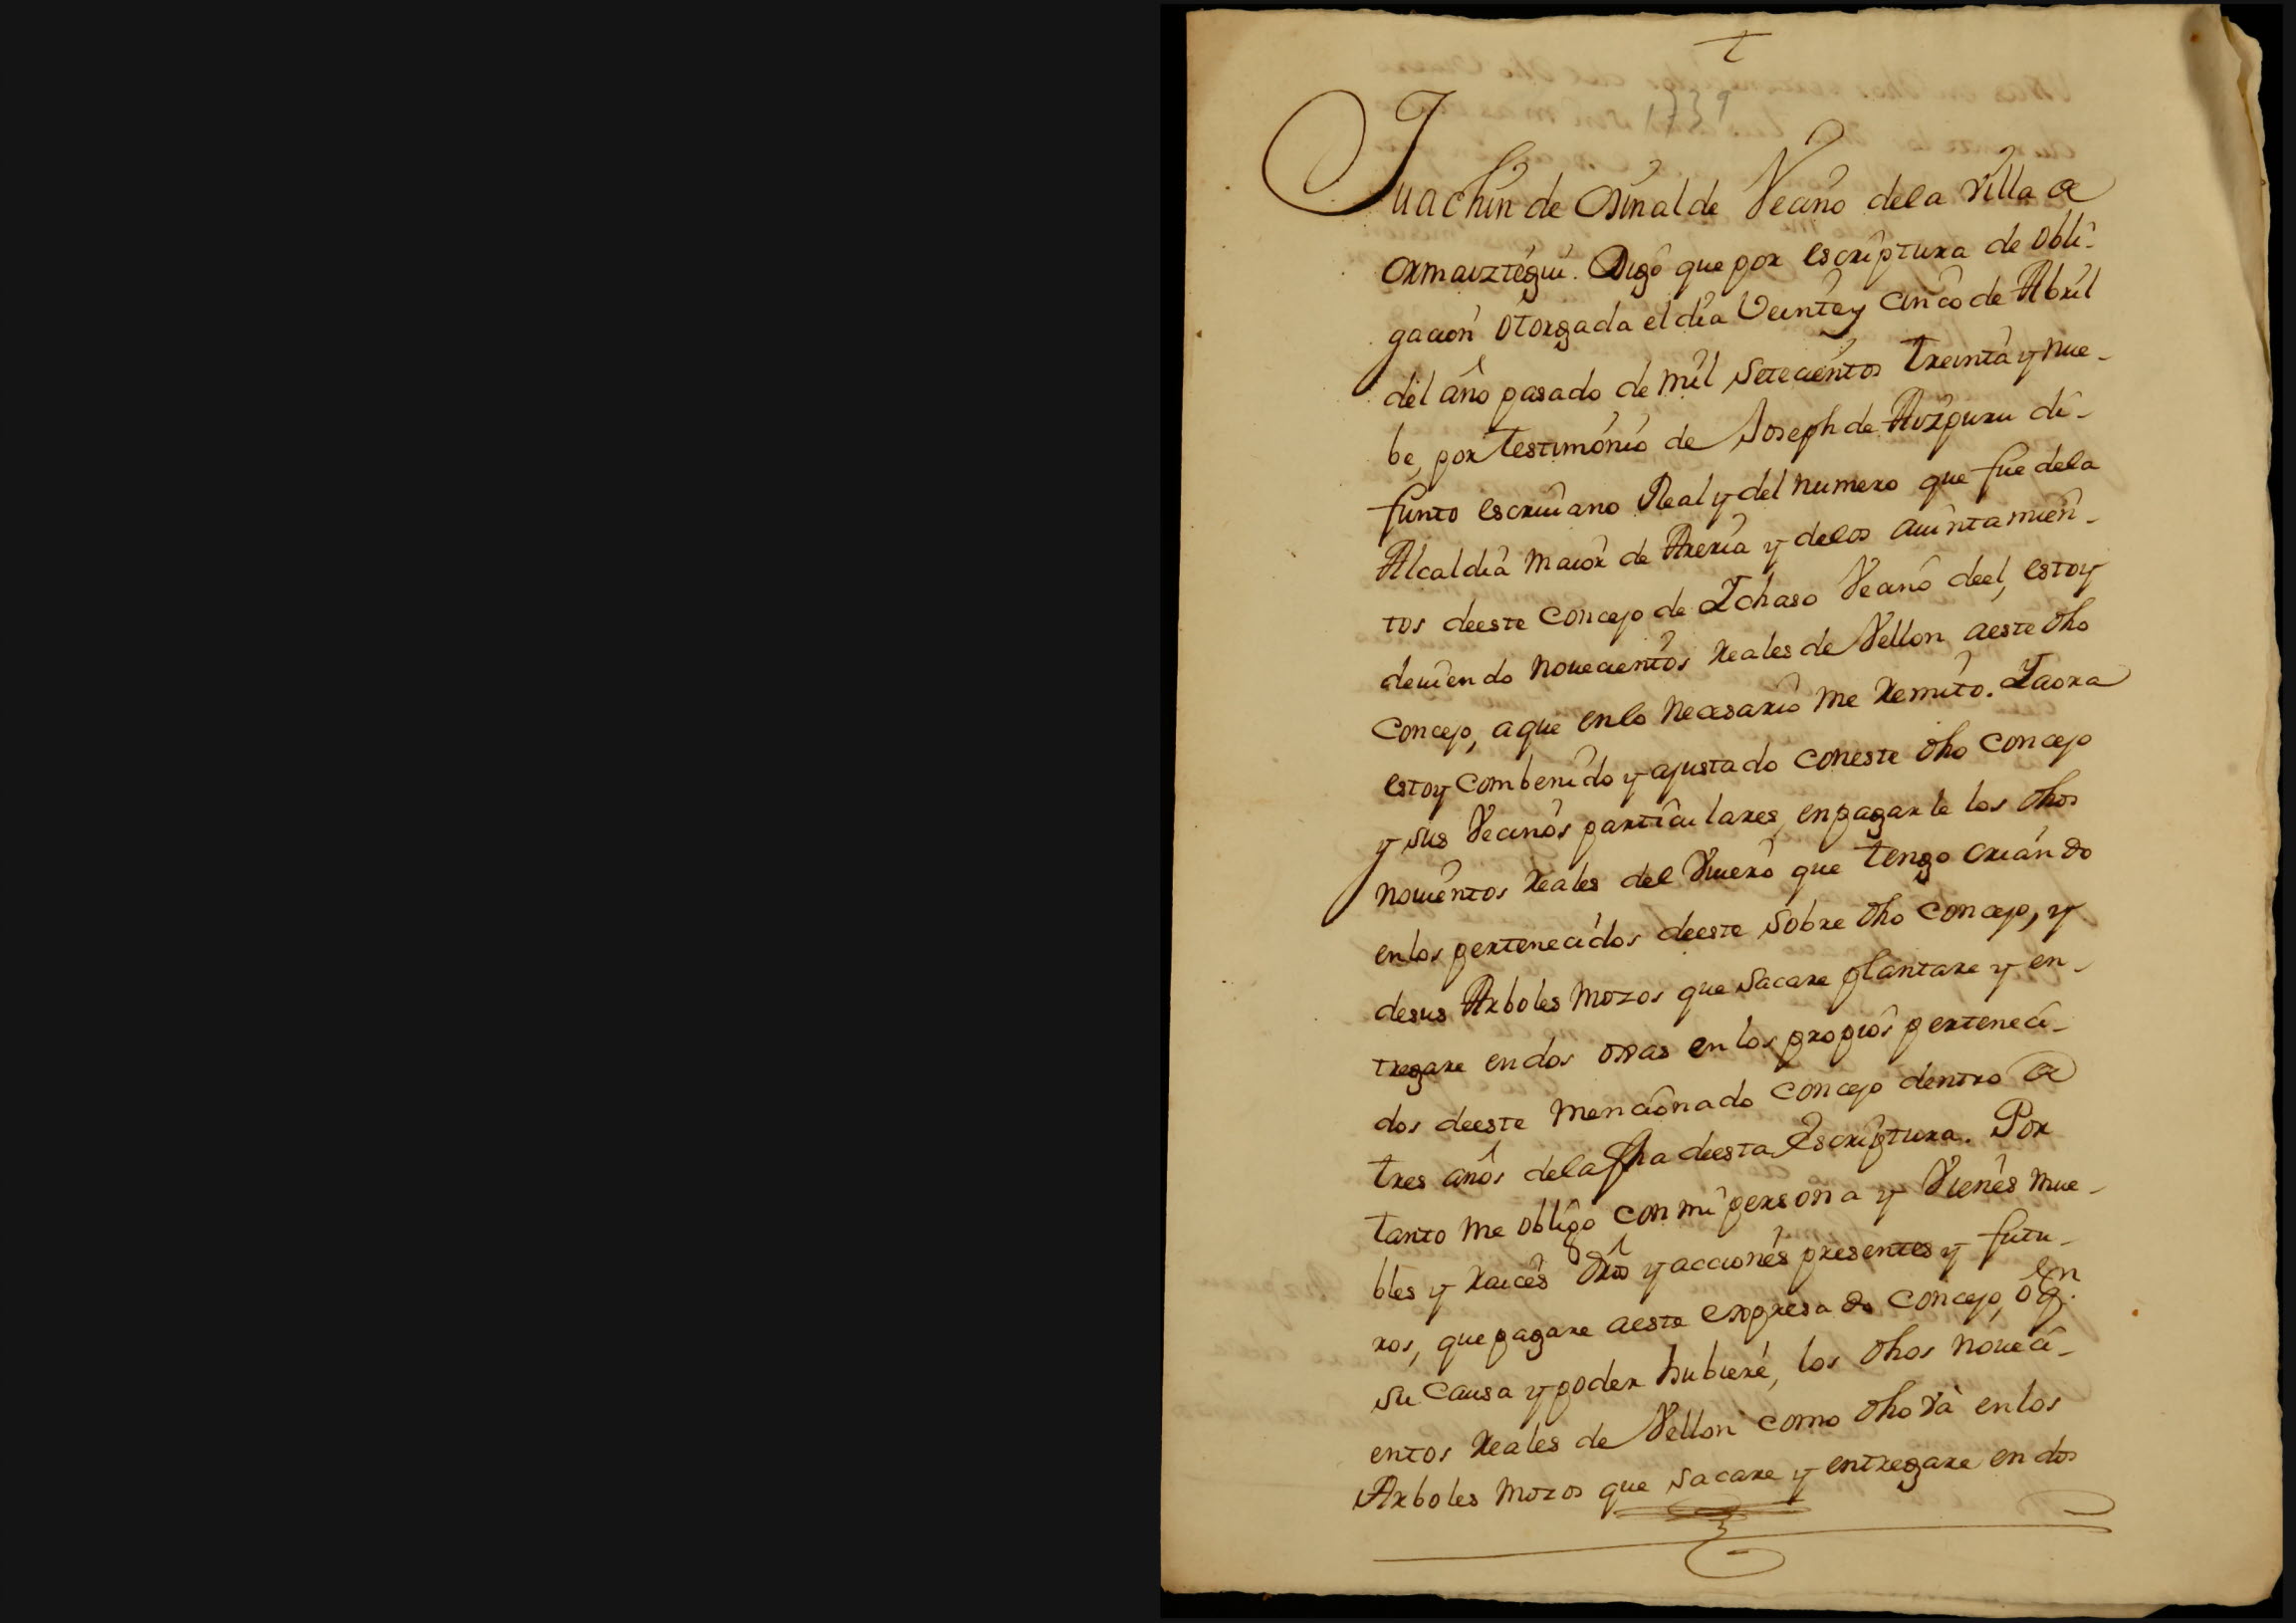 t
1739
Juachin de Osinalde Vecino dela Villa de
Ormaiztegui. Digo que por escriptura de obli-
gacion otorgada el dia Veinte y cinco de Abril
del año pasado de mil setecientos treinta y nue-
be, por testimonio de Joseph de Aizpuru di-
funto escriuano Real y del numero que fue dela
Alcaldia maior de Areria y delos aiuntamien-
tos deeste Concejo de Ichaso Vecino deel, estoy
deuiendo nouecientos reales de Vellon aeste dho
Concejo, aque enlo necesario me remito. Yaora
estoy combenido y ajustado coneste dho Concejo
y sus Vecinos particulares, enpagarle los dhos
nouientos reales del Viuero que tengo criando
enlos pertenecidos deeste sobre dho Concejo, y
desus Arboles mozos que sacare plantare y en-
tregare endos ojas en los propios perteneci-
dos deeste mencionado Concejo dentro de
tres años dela fha deesta Escriptura. Por
tanto me obligo con mi persona y Vienes mue-
bles y raices dros y acciones presentes y futu-
ros, que pagare aeste expresado Concejo, o qn
su causa y poder hubiere, los dhos noueci-
entos reales de Vellon como dho va enlos
Arboles mozos que sacare y entregare en dos